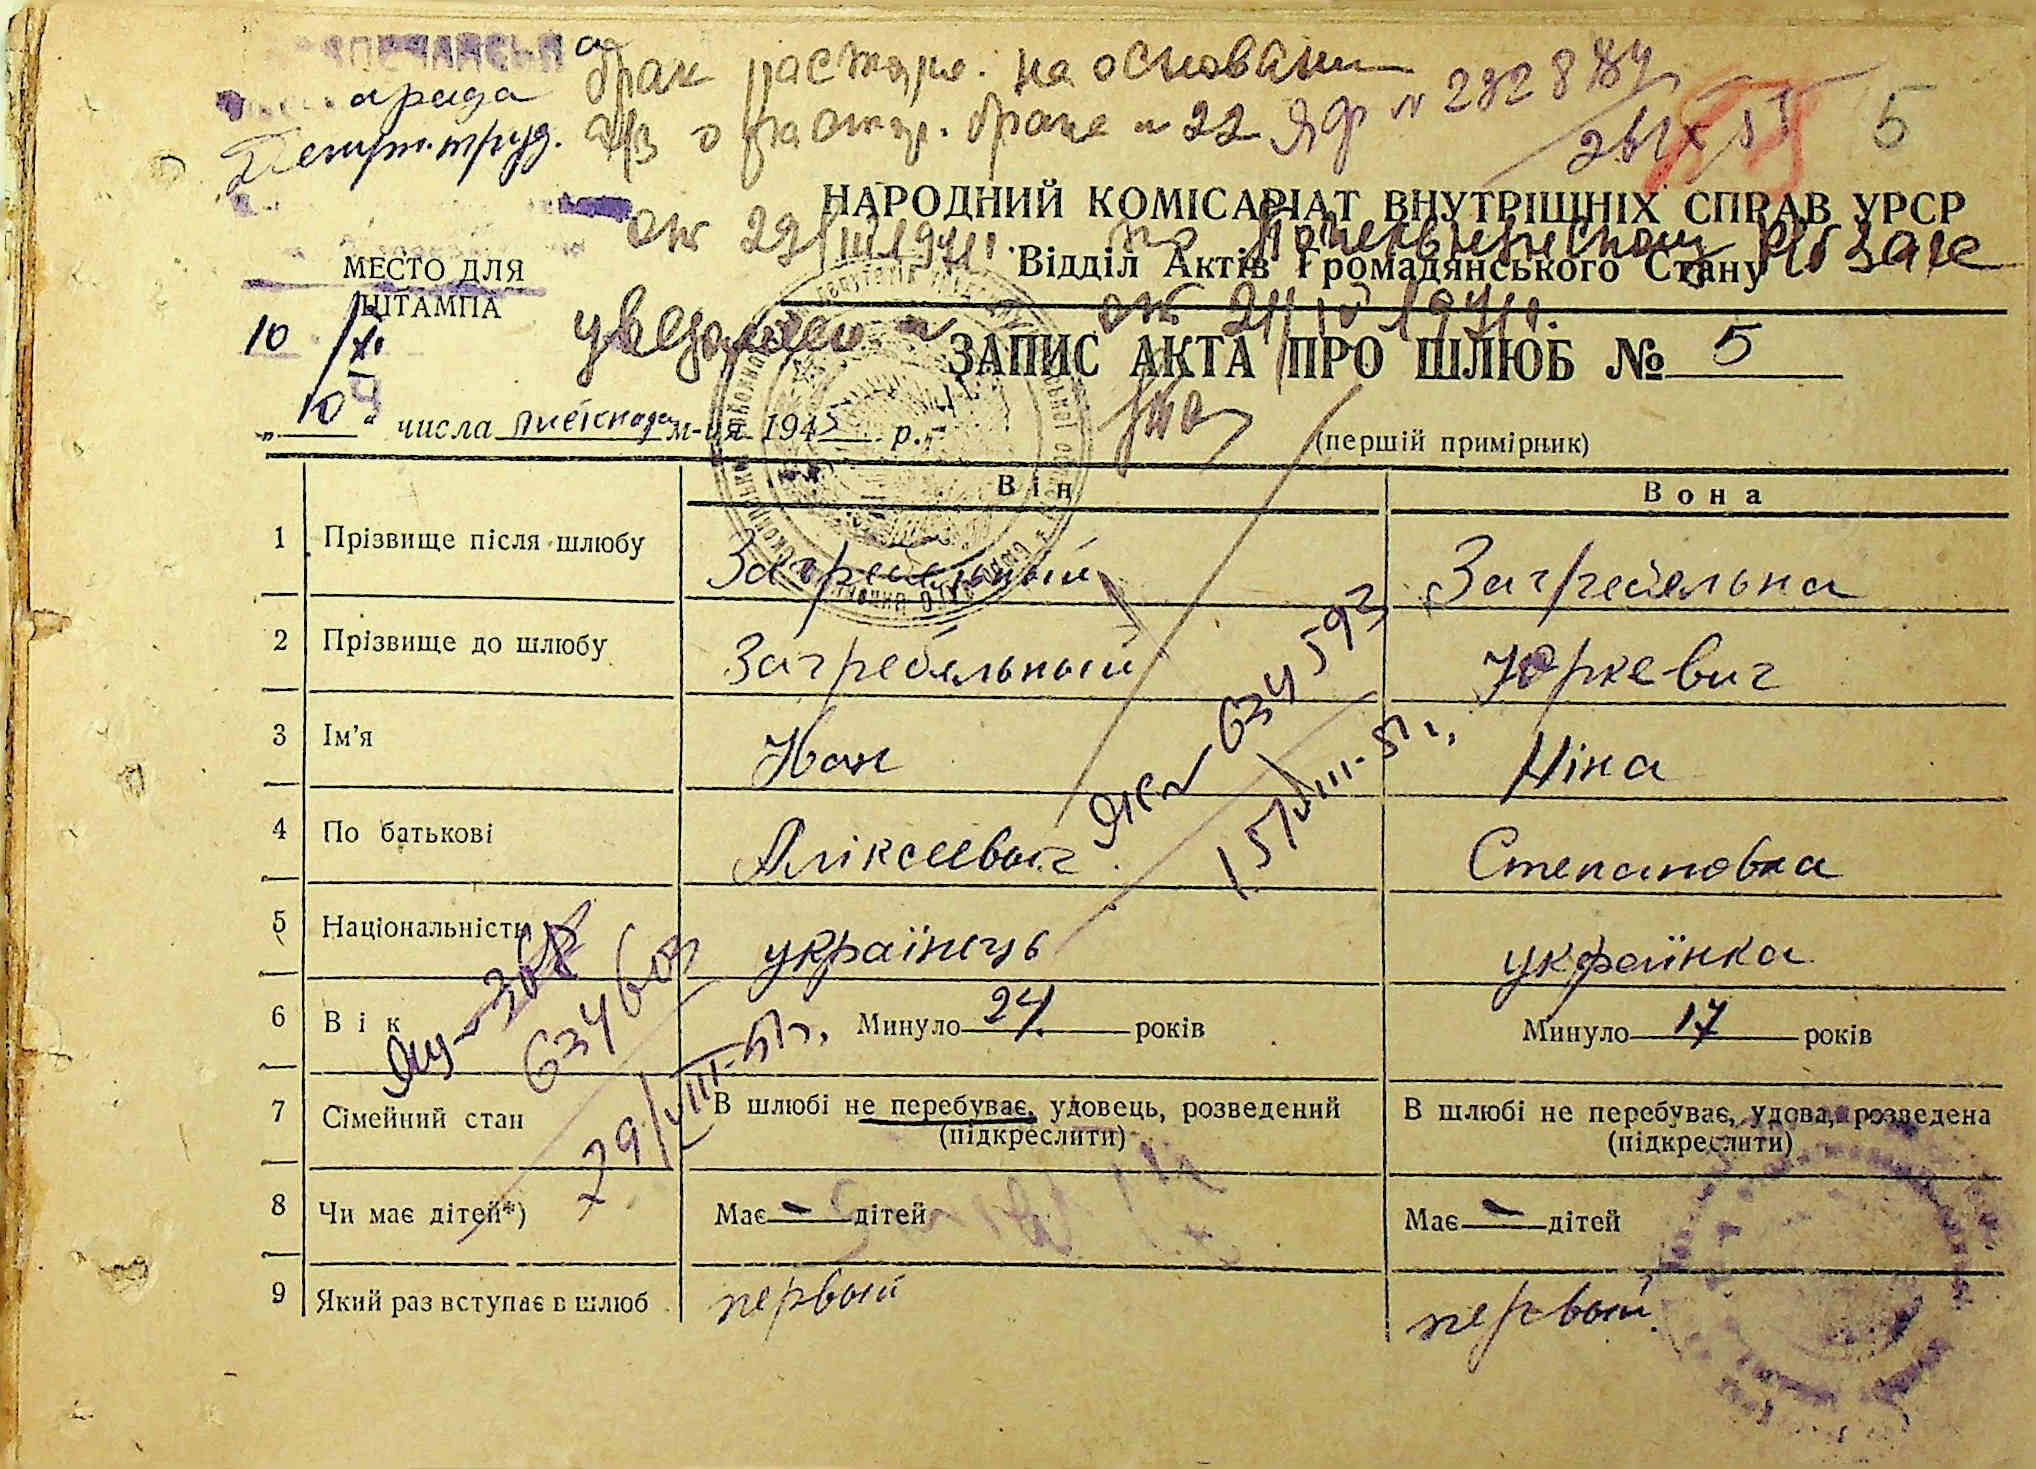 брак расторг. на основании
а/з о расторг. браке № 22 ЯФ № 282884
срада
Петр.труд.
5
НАРОДНИЙ КОМІСАРІАТ ВНУТРІШНІХ СПРАВ УРСР
от 29/III 1971г. по
Відділ Актів Громадянського Стану
МЕСТО ДЛЯ
ШТАМПА
10/XI
от 21/IV 1971г.
ЗАПИС АКТА ПРО ШЛЮБ № 5
„10“ числа м-ця 1945 р.
(перший примірник)
Він Вона
1 Прізвище після шлюбу Загребельный Загребельна
2 Прізвище до шлюбу Загребельный Юркевич
3 Ім'я Иван Ніна
4 По батькові Аліксеевич Степановна
5 Національність українець українка
6 Вік Минуло 24 років Минуло 17 років
634593
15/VIII-51г.
634603
29/VIII-51г.
7 Сімейний стан В шлюбі не перебуває, удовець, розведений (підкреслити) В шлюбі не перебуває, удова, розведена (підкреслити)
8 Чи має дітей*) Має — дітей Має — дітей
9 Який раз вступає в шлюб первый первый